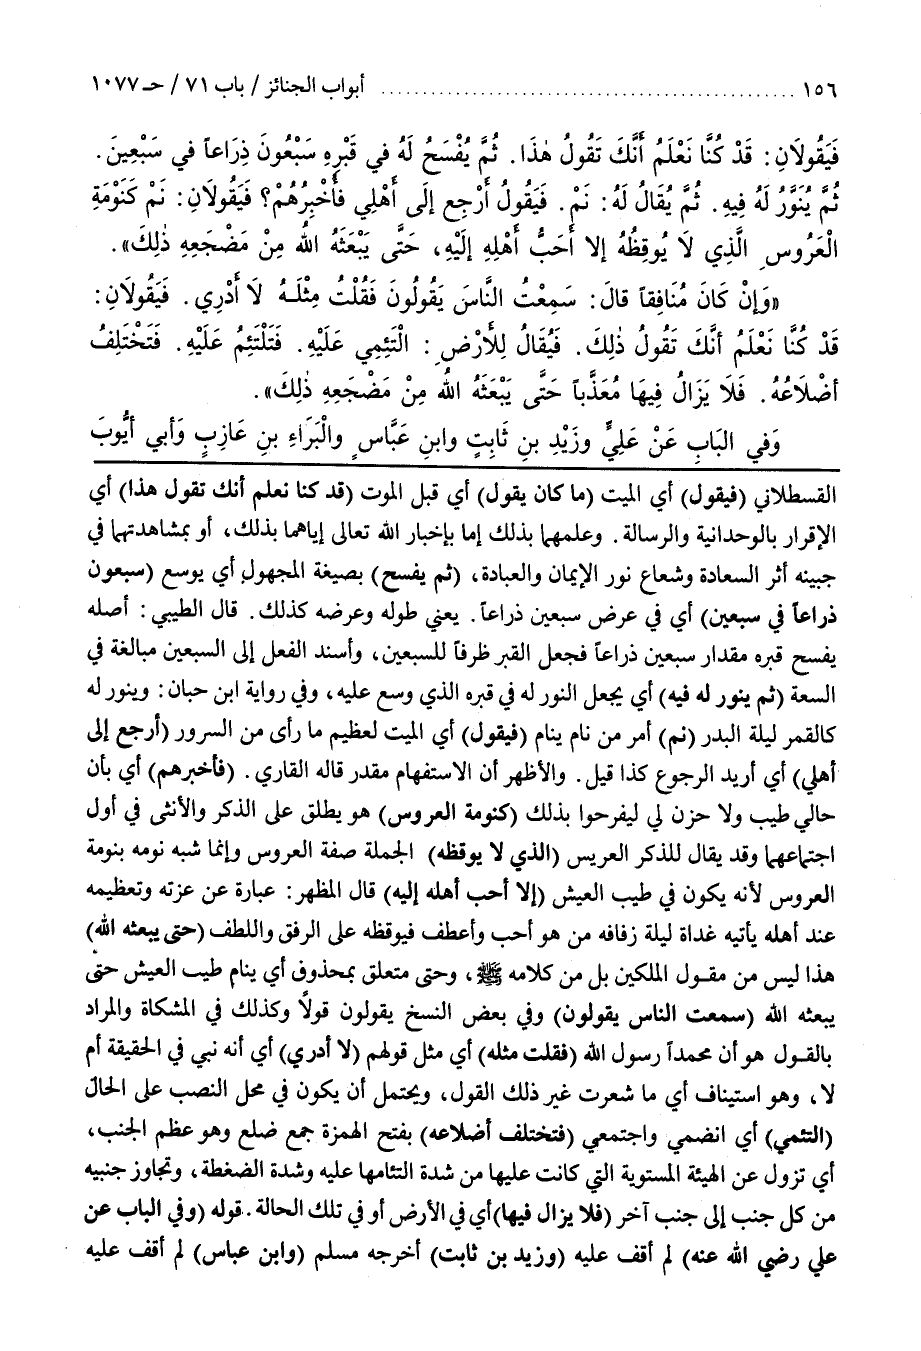 ١٥٦ ............................................................ أبواب الجنائز / باب ٧١ / حـ ١٠٧٧
فَيَقُولَانِ: قَدْ كُنَّا نَعْلَمُ أَنَّكَ تَقُولُ هٰذَا. ثُمَّ يُفْسَحُ لَهُ في قَبْرِهِ سَبْعُونَ ذِرَاعاً في سَبْعِينَ.
ثُمَّ يُنَوَّرُ لَهُ فِيهِ. ثُمَّ يُقَالُ لَهُ: نَمْ. فَيَقُولُ أَرْجِع إِلَى أَهْلِي فَأُخْبِرُهُمْ؟ فَيَقُولَانِ: نَمْ كَنَوْمَةِ
الْعَرُوسِ الَّذِي لَا يُوقِظُهُ إلا أَحَبُّ أَهْلِهِ إلَيْهِ، حَتَّى يَبْعَثَهُ اللهُ مِنْ مَضْجَعِهِ ذٰلِكَ».
«وَإِنْ كَانَ مُنَافِقاً قالَ: سَمِعْتُ النَّاسَ يَقُولُونَ فَقُلْتُ مِثْلَـهُ لَا أَدْرِي. فَيَقُولَانِ:
قَدْ كُنَّا نَعْلَمُ أنَّكَ تَقُولُ ذٰلِكَ. فَيُقَالُ لِلأَرْضِ: الْتَئِمِي عَلَيْهِ. فَتَلْتَئِمُ عَلَيْهِ. فَتَخْتَلِفُ
أضْلَاعُهُ. فَلَا يَزَالُ فِيهَا مُعَذَّباً حَتَّى يَبْعَثَهُ اللهُ مِنْ مَضْجَعِهِ ذٰلِكَ».
وَفي البَابِ عَنْ عَلِيٍّ وزَيْدِ بنِ ثَابِتٍ وابنِ عَبَّاسٍ والْبَرَاءِ بنِ عَازِبٍ وَأبي أيُّوبَ
القسطلاني (فيقول) أي الميت (ما كان يقول) أي قبل الموت (قد كنا نعلم أنك تقول هذا) أي
الإقرار بالوحدانية والرسالة. وعلمهما بذلك إما بإخبار الله تعالى إياهما بذلك، أو بمشاهدتهما في
جبينه أثر السعادة وشعاع نور الإيمان والعبادة، (ثم يفسح) بصيغة المجهول أي يوسع (سبعون
ذراعاً في سبعين) أي في عرض سبعين ذراعاً. يعني طوله وعرضه كذلك. قال الطيبي: أصله
يفسح قبره مقدار سبعين ذراعاً فجعل القبر ظرفاً للسبعين، وأسند الفعل إلى السبعين مبالغة في
السعة (ثم ينور له فيه) أي يجعل النور له في قبره الذي وسع عليه، وفي رواية ابن حبان: وينور له
كالقمر ليلة البدر (نم) أمر من نام ينام (فيقول) أي الميت لعظيم ما رأى من السرور (أرجع إلى
أهلي) أي أريد الرجوع كذا قيل. والأظهر أن الاستفهام مقدر قاله القاري. (فأخبرهم) أي بأن
حالي طيب ولا حزن لي ليفرحوا بذلك (كنومة العروس) هو يطلق على الذكر والأنثى في أول
اجتماعهما وقد يقال للذكر العريس (الذي لا يوقظه) الجملة صفة العروس وإنما شبه نومه بنومة
العروس لأنه يكون في طيب العيش (إلا أحب أهله إليه) قال المظهر: عبارة عن عزته وتعظيمه
عند أهله يأتيه غداة ليلة زفافه من هو أحب وأعطف فيوقظه على الرفق واللطف (حتى يبعثه الله)
هذا ليس من مقـول الملكين بل من كلامه ﷺ، وحتى متعلق بمحذوف أي ينام طيب العيش حتى
يبعثه الله (سمعت الناس يقولون) وفي بعض النسخ يقولون قولاً وكذلك في المشكاة والمراد
بالقـول هو أن محمداً رسول الله (فقلت مثله) أي مثل قولهم (لا أدري) أي أنه نبي في الحقيقة أم
لا، وهو استيناف أي ما شعرت غير ذلك القول، ويحتمل أن يكون في محل النصب على الحال
(التئمي) أي انضمي واجتمعي (فتختلف أضلاعه) بفتح الهمزة جمع ضلع وهو عظم الجنب،
أي تزول عن الهيئة المستوية التي كانت عليها من شدة التئامها عليه وشدة الضغطة، وتجاوز جنبيه
من كل جنب إلى جنب آخر (فلا يزال فيها) أي في الأرض أو في تلك الحالة. قوله (وفي الباب عن
علي رضي الله عنه) لم أقف عليه (وزيد بن ثابت) أخرجه مسلم (وابن عباس) لم أقف عليه